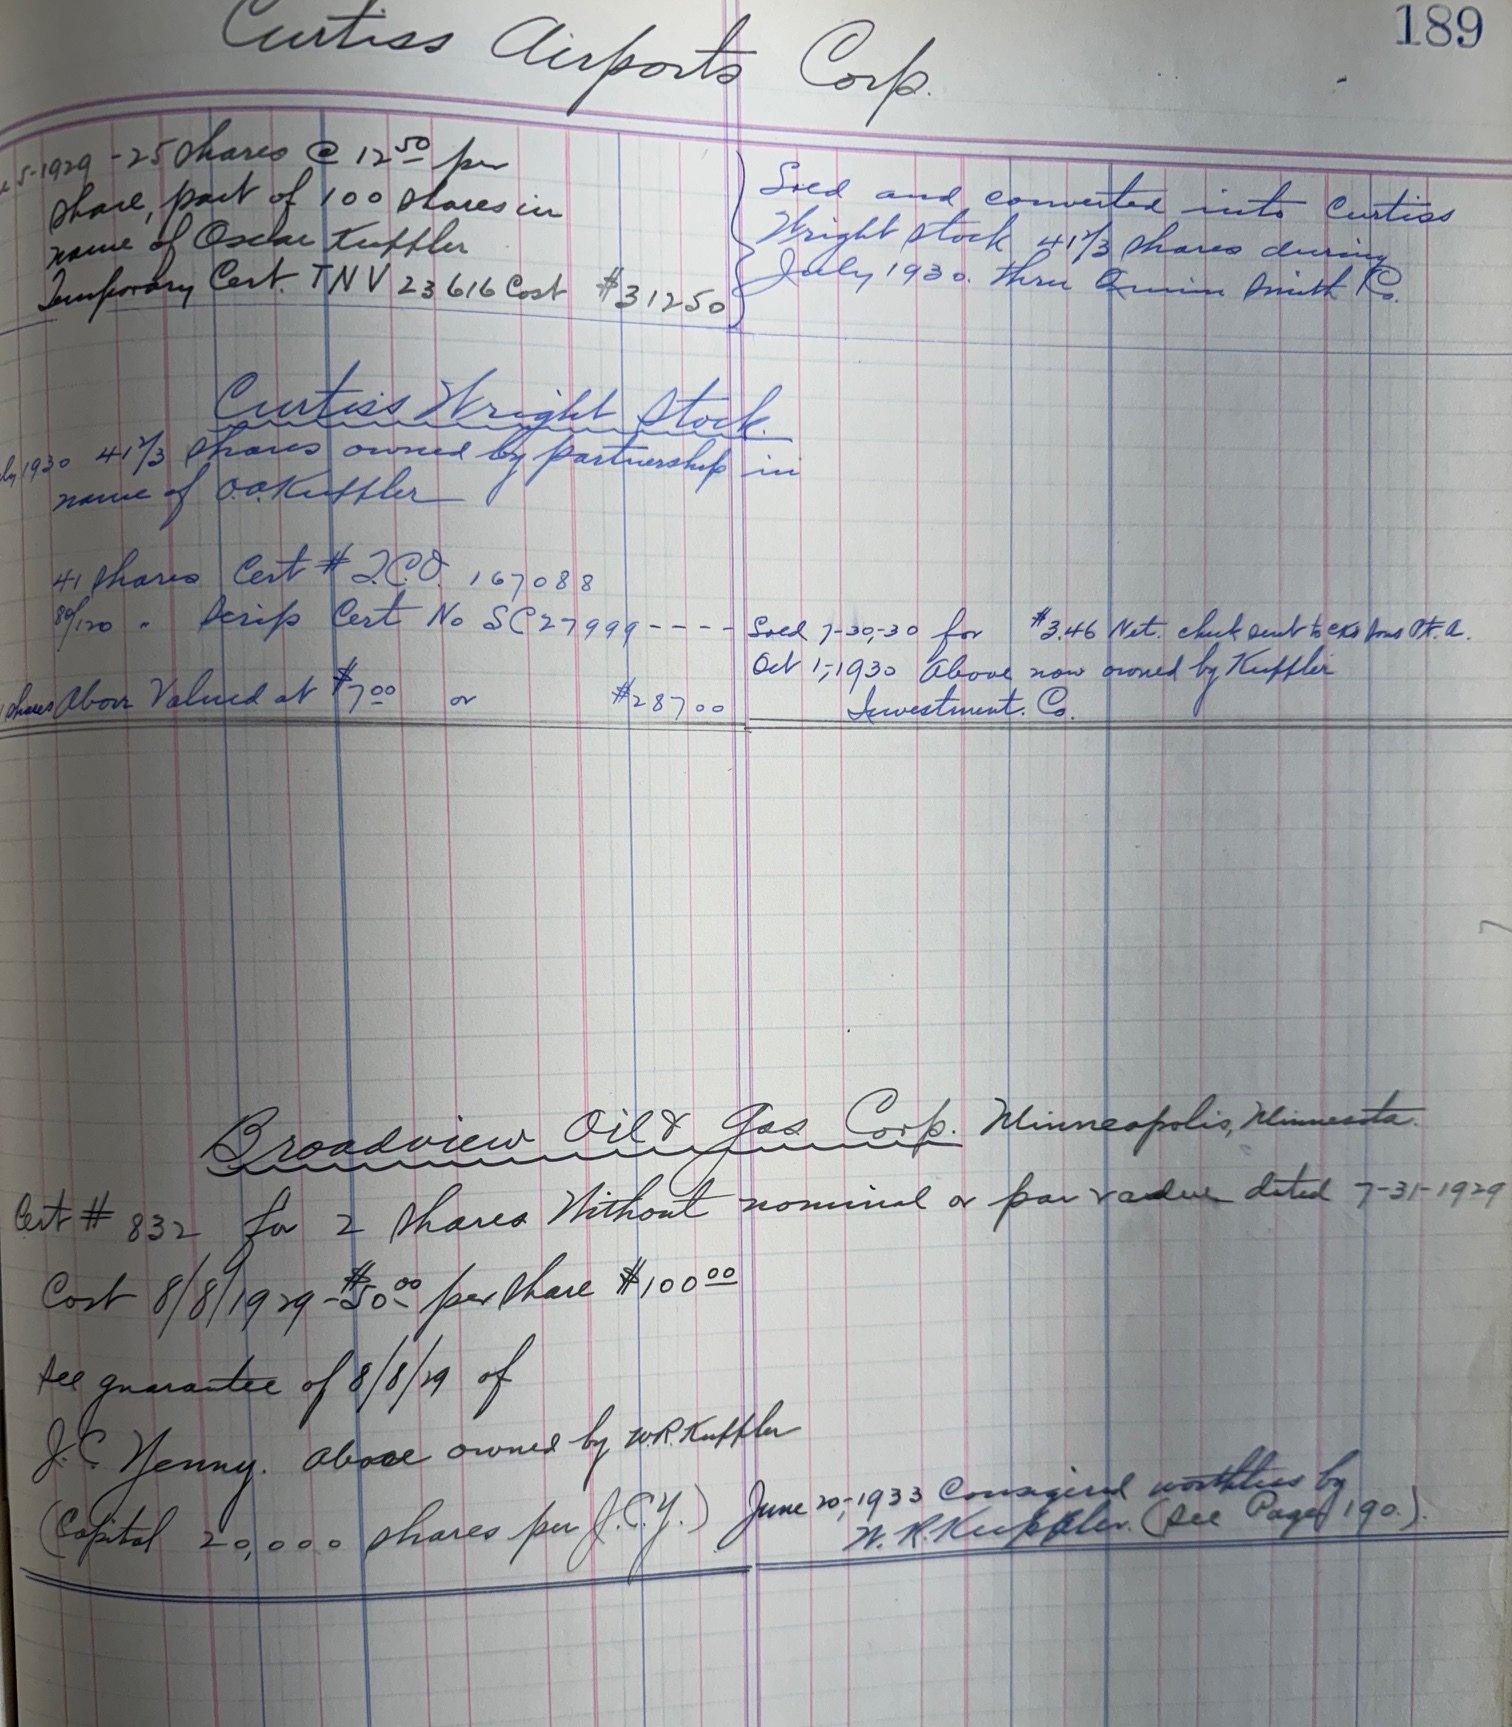 189
Curtiss Airports Corp.
5-1929 - 25 shares @ 12 50 per
share, part of 100 shares in
name of Oscar Kuffler
Temporary Cert. TNV 23616 Cost $312 50
Sold and converted into Curtiss
Wright stock 41 2/3 shares during
July 1930. thru Smith Co.
Curtiss Wright Stock.
1930 41 2/3 shares owned by partnership in
name of O.A. Kuffler
41 shares Cert # 167088
80/120 " Scrip Cert No SC27999 ---- Sold 7-30-30 for $3.46 Net. check sent to
Oct 1, 1930 Above now owned by Kuffler
shares Above Valued at $7 00 or $287 00
Investment. Co.
Broadview Oil & Gas Corp. Minneapolis, Minnesota.
Cert # 832 for 2 shares Without nominal or par value dated 7-31-1929
Cost 8/8/1929 - $50 00 per share $100 00
See guarantee of 8/8/29 of
J.C. Yenny. above owned by W.R. Kuffler
(Capital 20,000 shares per J.C.Y.)
June 20, 1933 Consigered worthless by
W. R. Kuffler. (See Page 190.)